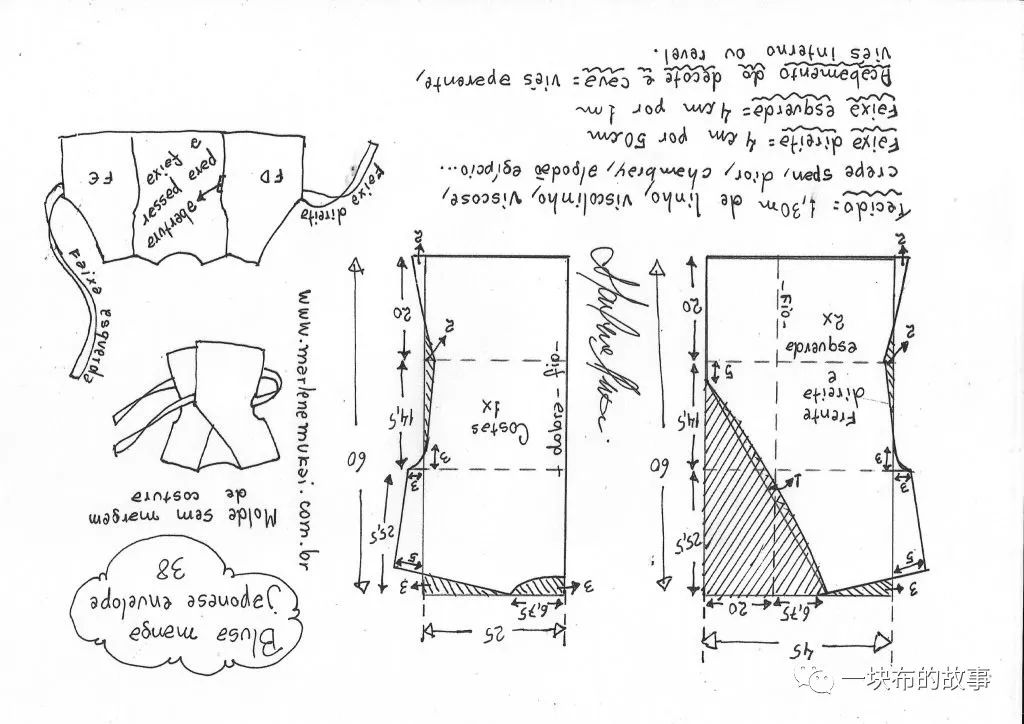 Blusa manga
japonese envelope
38
Molde sem margem
de costura
www.marlenemukai.com.br
45
20
6,75
3
5
25,5
1
3
3
60
14,5
Frente
direita e
esquerda
2x
5
2
- Fio -
20
2
25
6,75
3
3
5
25,5
3
3
60
14,5
Costas
1x
dobra - fio -
2
20
2
Faixa esquerda
Faixa direita
FD
FE
abertura
para passar
a faixa
Tecido = 1,30m de linho, viscolinho, viscose,
crepe span, dior, chambray, algodão egípcio...
Faixa direita = 4 cm por 50cm
Faixa esquerda = 4 cm por 1m
Acabamento do decote e cava = viés aparente,
viés interno ou revel.
一块布的故事